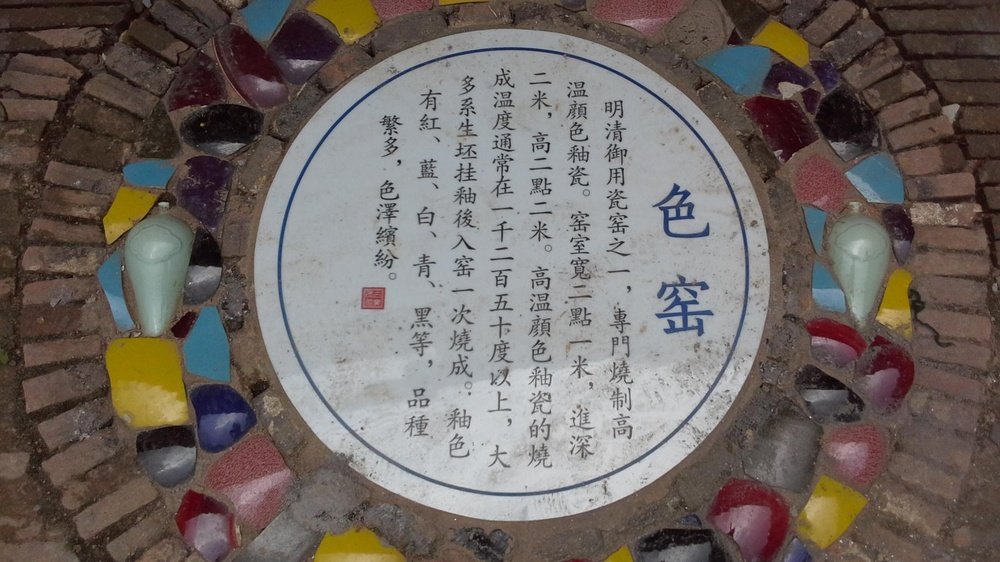 色窑
明清御用瓷窑之一，專門燒制高
温顔色釉瓷。窑室寬二點一米，進深
二米，高二點二米。高温顔色釉瓷的燒
成温度通常在一千二百五十度以上，大
多系生坯挂釉後入窑一次燒成。釉色
有紅、藍、白、青、黑等，品種
繁多，色澤繽紛。